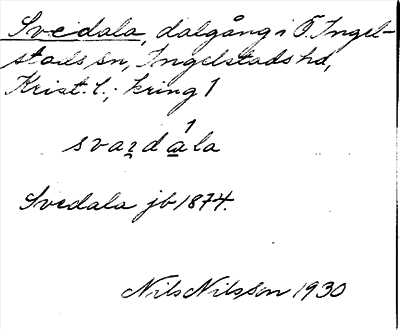 Svedala, dalgång i Ö. Ingel-
stads sn, Ingelstads hd,
Krist. l.; kring 1
1
svazdala
Svedala jb 1874.
Nils Nilsson 1930